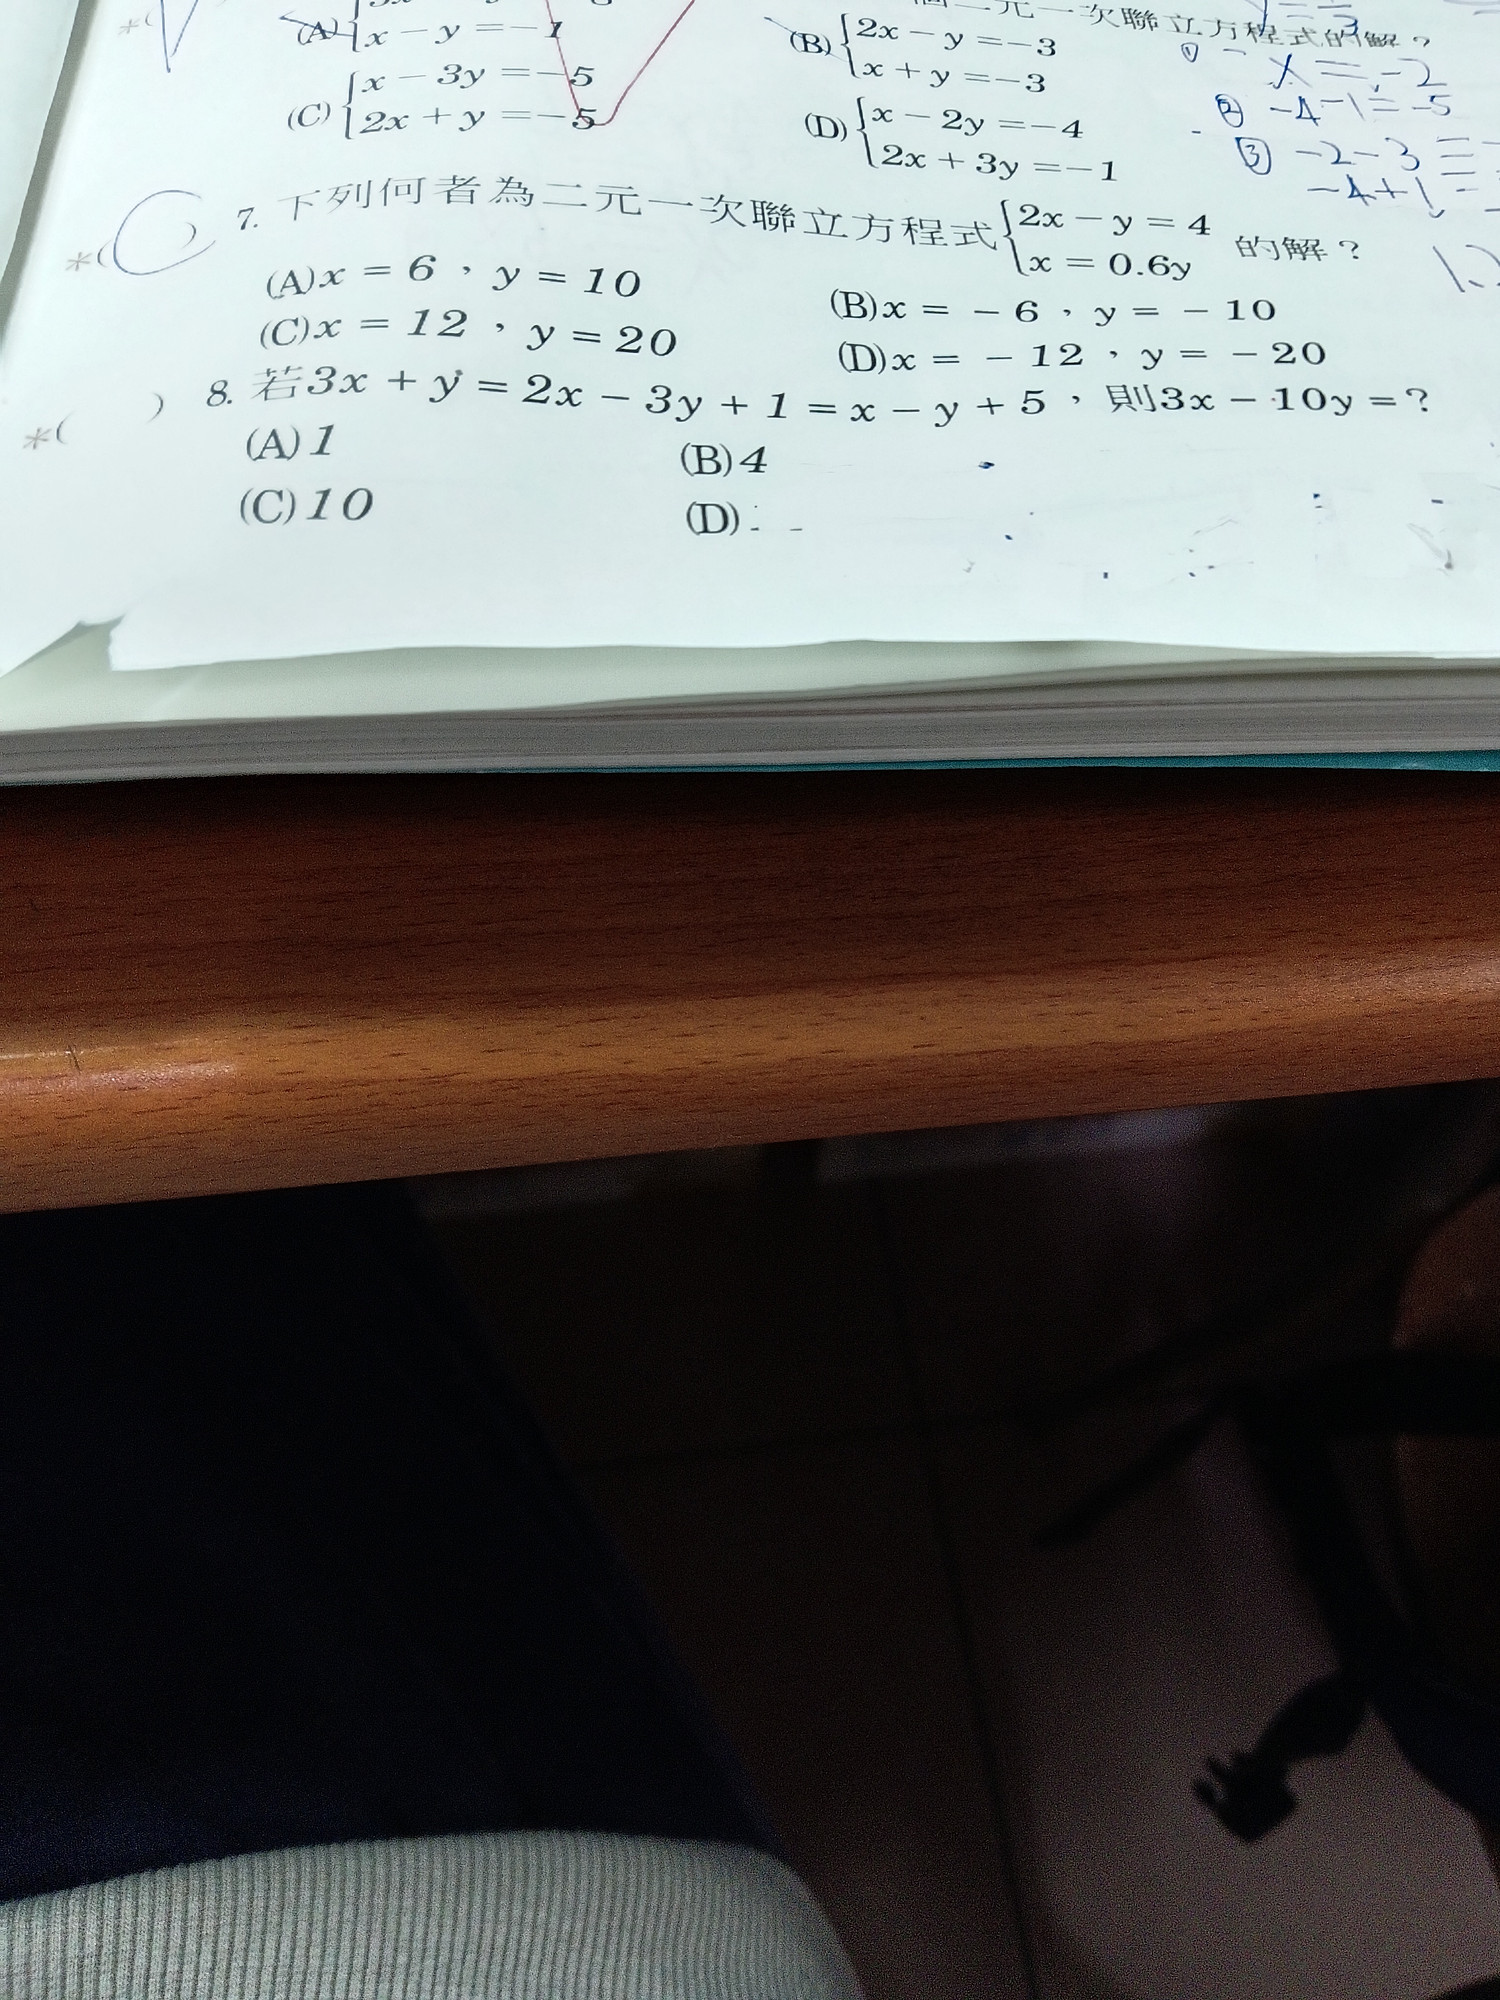 (A) x − y = −1
(B) 2x − y = −3
x + y = −3
二元一次聯立方程式的解？
(C) x − 3y = −5
2x + y = −5
(D) x − 2y = −4
2x + 3y = −1
x = −2
② −4−1 = −5
③ −2−3 =
−4+1 =
*( ) 7. 下列何者為二元一次聯立方程式 2x − y = 4
x = 0.6y 的解？
(A)x = 6，y = 10
(B)x = −6，y = −10
(C)x = 12，y = 20
(D)x = −12，y = −20
*( ) 8. 若3x + y = 2x − 3y + 1 = x − y + 5，則3x − 10y = ?
(A)1
(B)4
(C)10
(D)